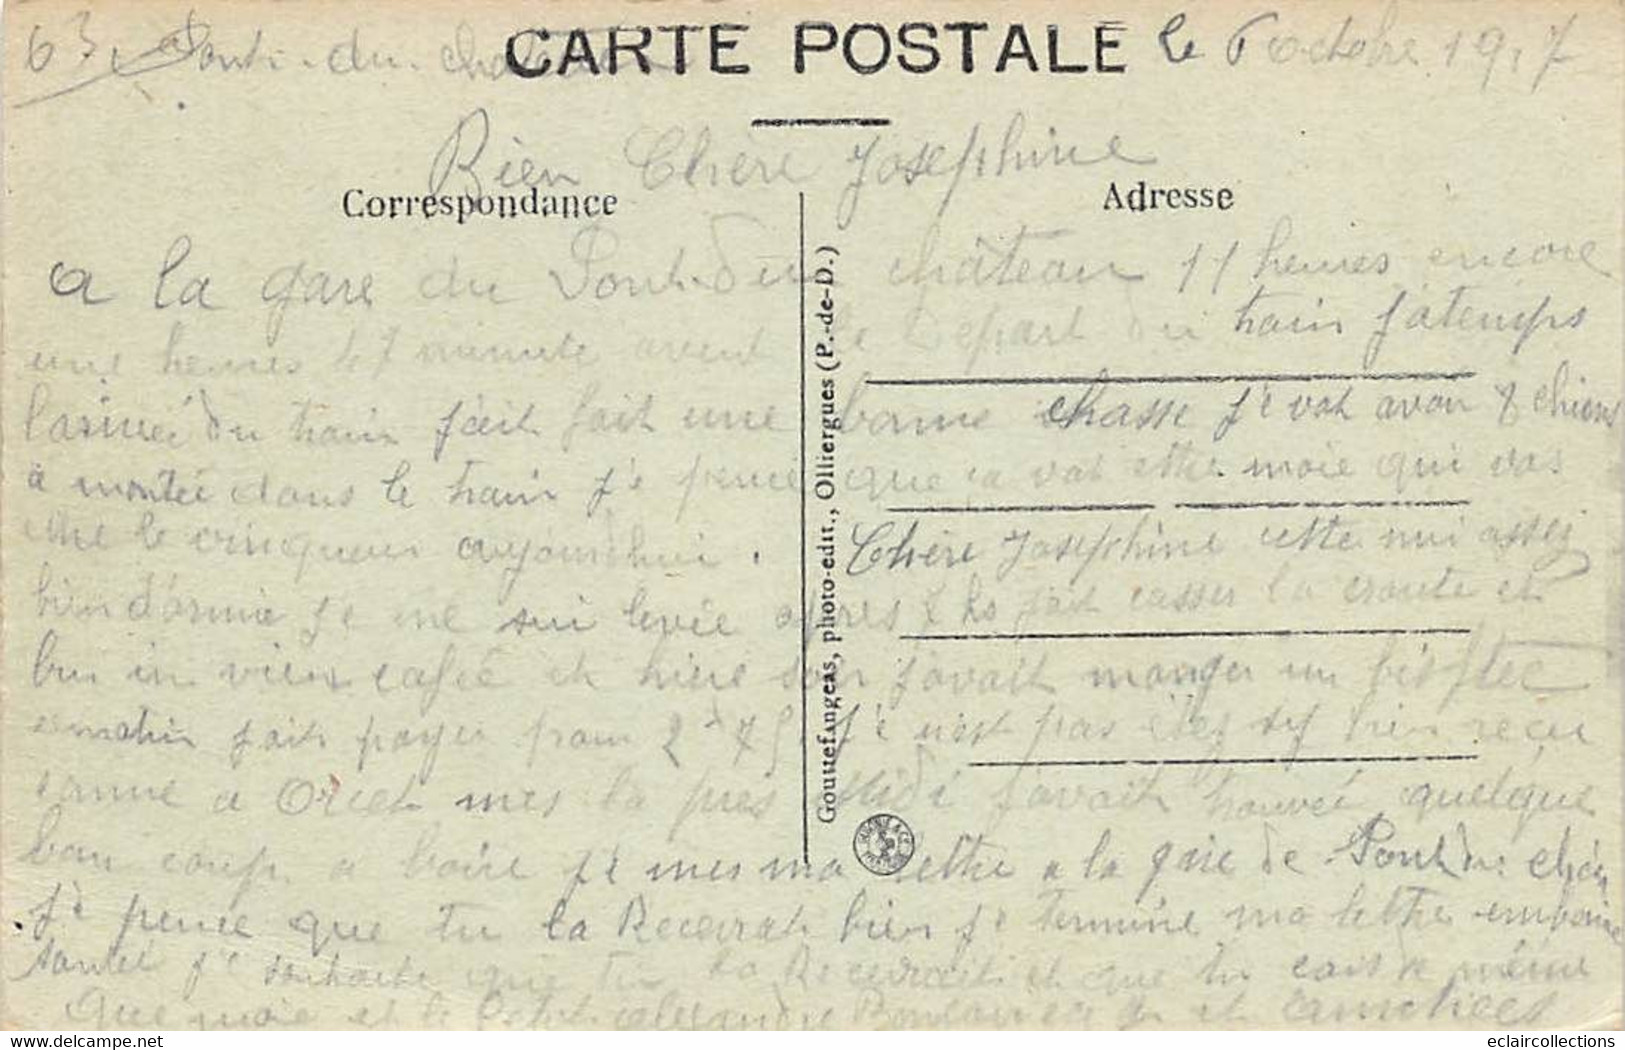 63 Pont-du-chateau CARTE POSTALE le 6 octobre 1917
Bien Chere Josephine
Correspondance
Adresse
a la gare du Pont-du château 11 heures encore
une heures 47 minute avent le Depart du train J'atemps
larivéé du train j'ait fait une bonne chasse j'e vat avoir 8 chiens
a montéé dans le train j'e pence que ça vat ettre moie qui vas
ettre le vinqueur aujourdhui. Chère Josephine cette nui assez
bien d'ormie j'e me sui levée apres 7 hs fait casser la croute et
bu un vien cafée et hiere soir j'avait manger un bifftec
matin fait payer pour 2 f 75 j'e n'est pas étez sy bien recu
comme a Orcet mes la pres midi j'avait trouvéé quelque
bon coup a boire j'e mes ma lettre a la gare de Pont du chateau
j'e pence que tu la Receverat bien j'e termine ma lettre enbonne
santéé j'e souhaite que tu la Receverait et que tu soit de même
Que moie et le petit alexandre et
Gouttefangeas, photo-édit., Olliergues (P.-de-D.)
eclaircollections